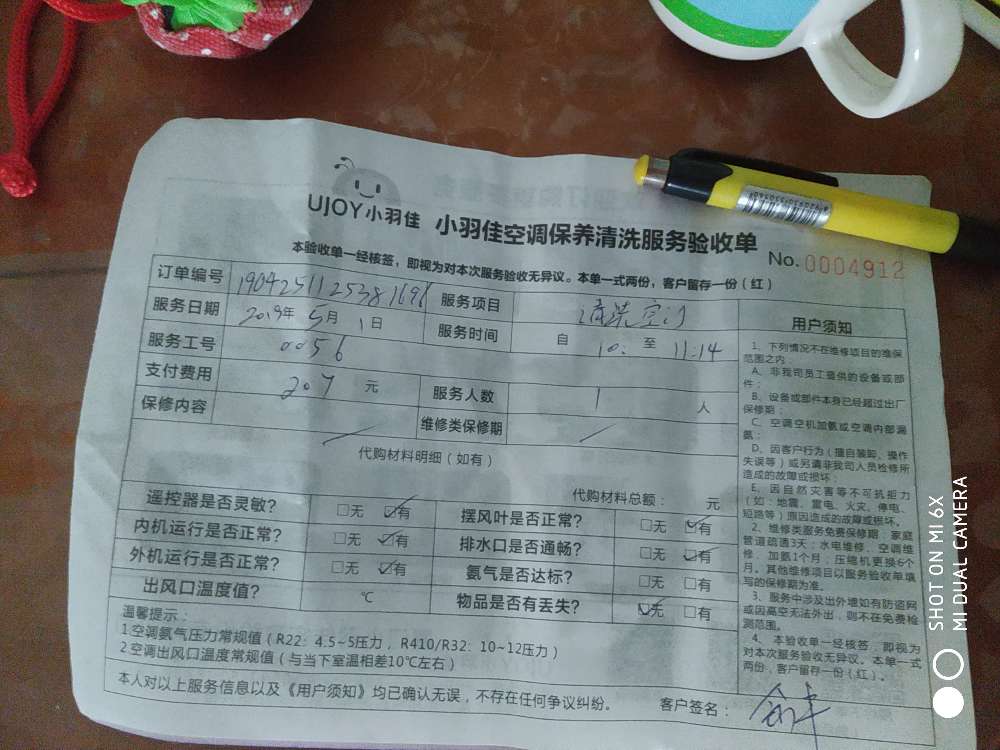 UJOY小羽佳 小羽佳空调保养清洗服务验收单
No. 0004912
本验收单一经核签，即视为对本次服务验收无异议。本单一式两份，客户留存一份（红）
订单编号 服务项目 清洗空调
服务日期 2019年 5月 1日 服务时间 自 10: 至 11:14
服务工号 0056
支付费用 207 元 服务人数 1 人
保修内容 维修类保修期
代购材料明细（如有）
代购材料总额： 元
遥控器是否灵敏？ □无 ☑有 摆风叶是否正常？ □无 ☑有
内机运行是否正常？ □无 ☑有 排水口是否通畅？ □无 ☑有
外机运行是否正常？ □无 ☑有 氨气是否达标？ □无 □有
出风口温度值？ ℃ 物品是否有丢失？ ☑无 □有
温馨提示：
1.空调氨气压力常规值（R22：4.5~5压力，R410/R32：10~12压力）
2.空调出风口温度常规值（与当下室温相差10℃左右）
本人对以上服务信息以及《用户须知》均已确认无误，不存在任何争议纠纷。 客户签名：
用户须知
1、下列情况不在维修项目的维保
范围之内：
A、非我司员工提供的设备或部
件；
B、设备或部件本身已经超过出厂
保修期；
C、空调空机加氨或空调内部漏
氨；
D、因客户行为（擅自装卸、操作
失误等）或另请非我司人员检修所
造成的故障或损坏；
E、因自然灾害等不可抗拒力
（如：地震、雷电、火灾、停电、
短路等）原因造成的故障或损坏。
2、维修类服务免费保修期：家庭
管道疏通3天；水电维修、空调维
修、加氨1个月；压缩机更换6个
月。其他维修项目以服务验收单填
写的保修期为准。
3、服务中涉及出外墙如有防盗网
或因高空无法外出，则不在免费检
测范围。
4、本验收单一经核签，即视为
对本次服务验收无异议。本单一式
两份，客户留存一份（红）。
SHOT ON MI 6X
MI DUAL CAMERA